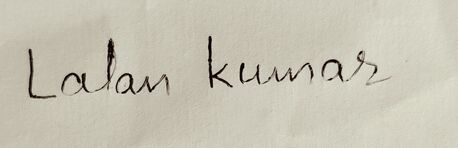 Lalan kumar